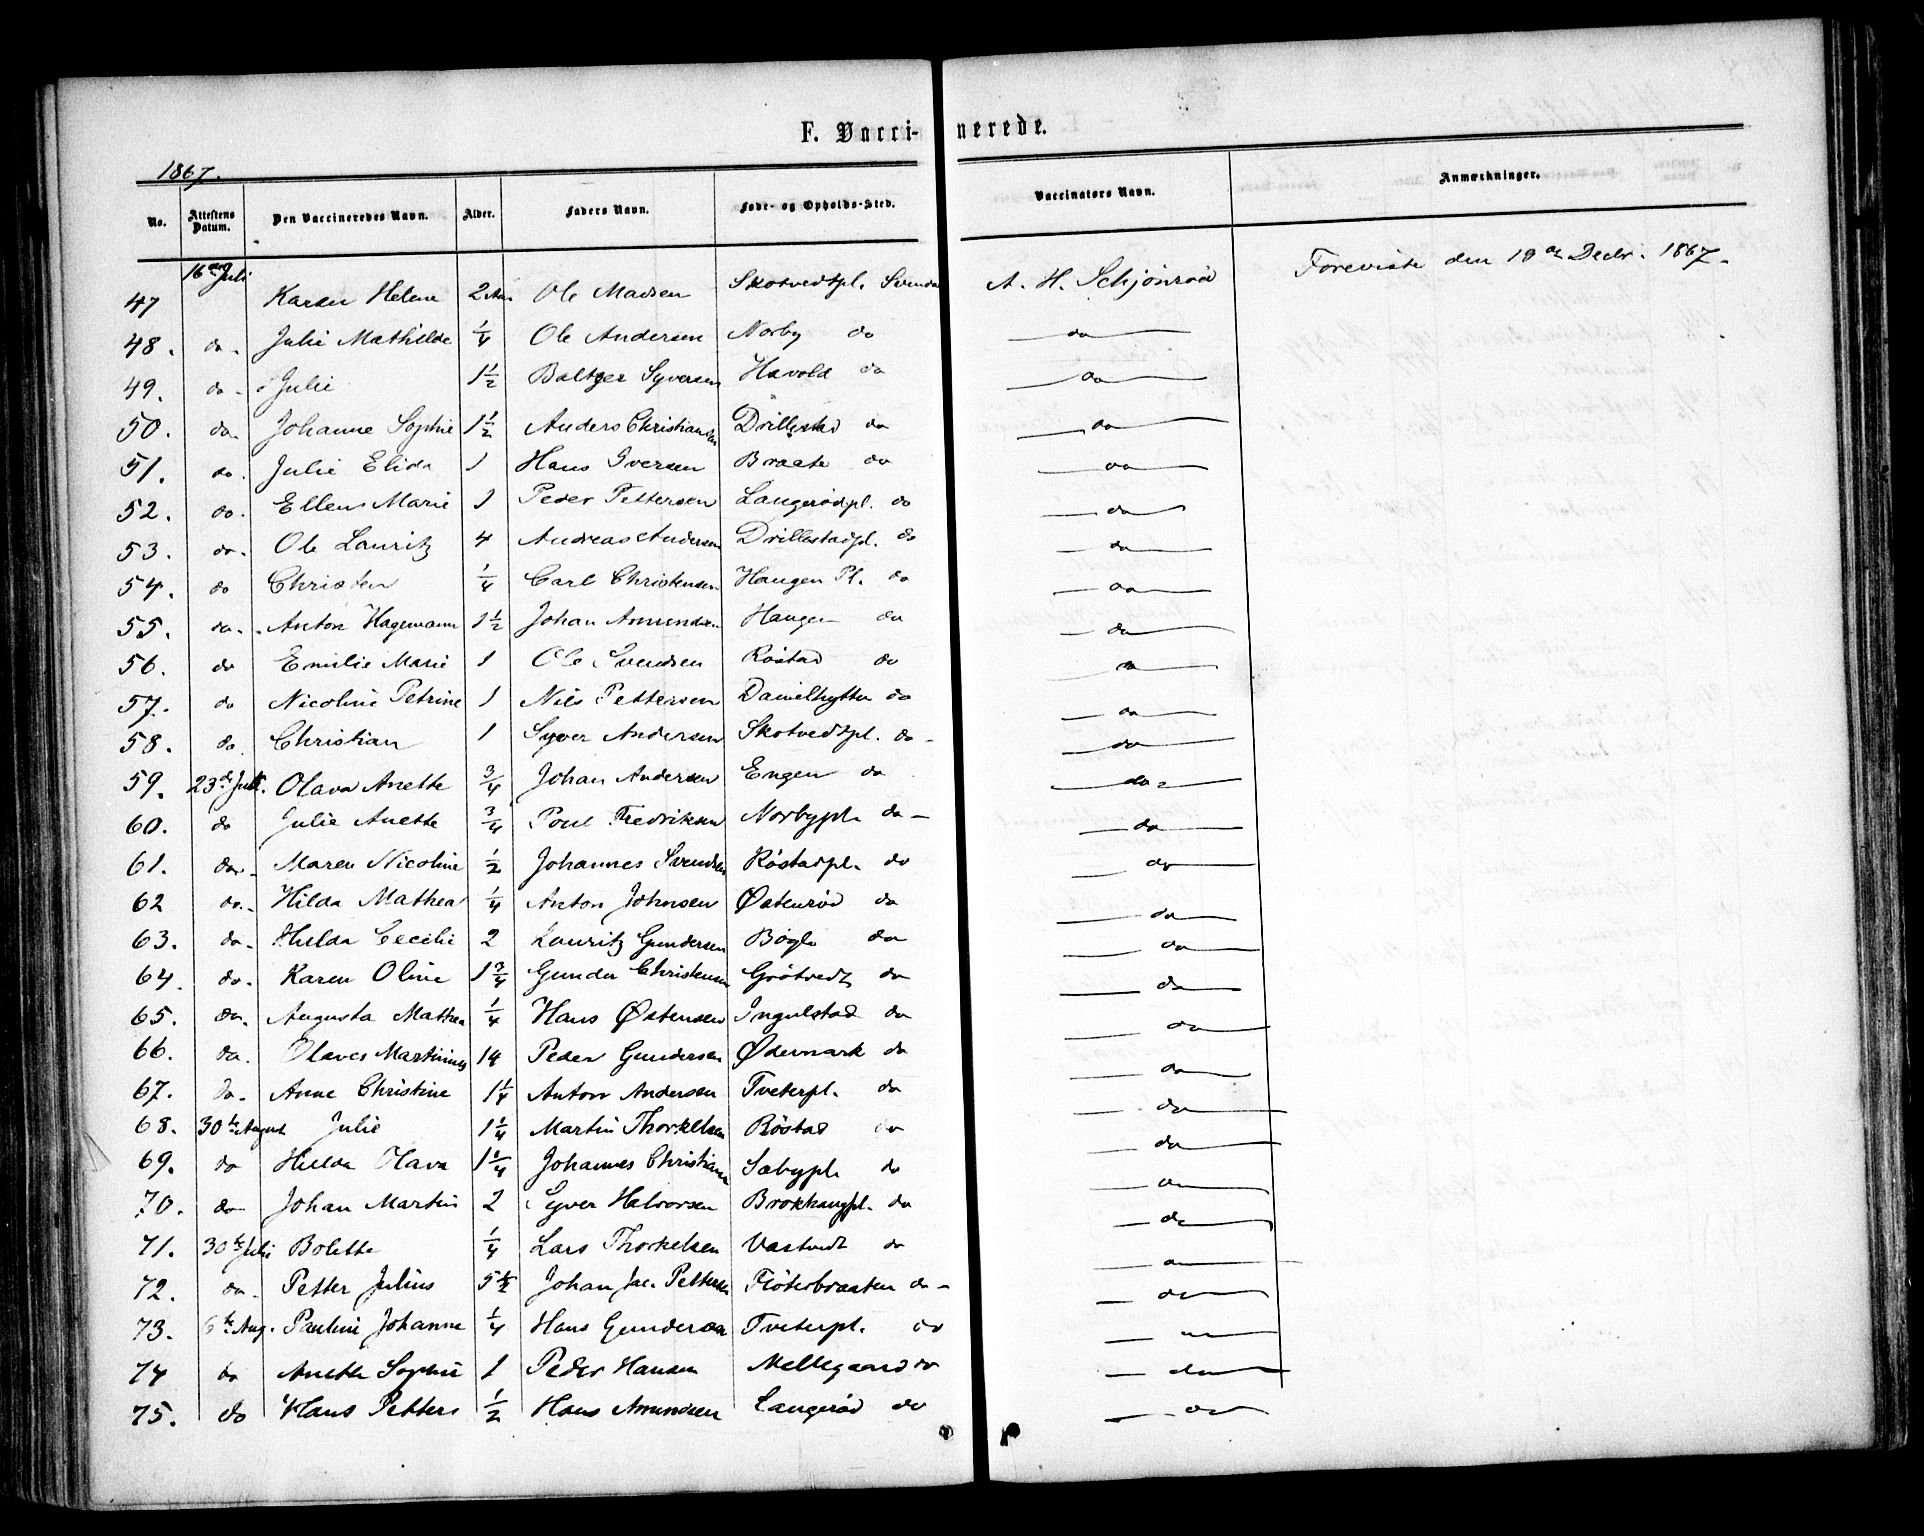 F. Vaccinerede.
1867.
No. Attestens Datum. Den Vaccineredes Navn. Alder. Faders Navn. Føde- og Opholds-Sted. Vaccinators Navn. Anmærkninger.
47 16de Juli Karen Helene 2 Aar Ole Madsen Skotvedtpl. A. H. Schjønrød Foreviste den 19de Decbr. 1867.
48. do. Julie Mathilde 1/4 Ole Andersen Norby do do
49. do. Julie 1 1/2 Baltzer Syversen Havold do do
50. do. Johanne Sophie 1 1/2 Anders Christiansen Drillestad do do
51. do. Julie Elida 1 Hans Iversen Braate do do
52. do. Ellens Marie 1 Peder Pettersen Langerødpl. do do
53. do. Ole Lauritz 4 Andreas Andersen Drillestadpl. do do
54. do Christen 1/4 Carl Christensen Haugen Pl. do do
55. do. Anton Hagemann 1 1/2 Johan Amundsen Haugen do do
56. do Emilie Marie 1 Ole Svendsen Røstad do do
57. do Nicoline Petrine 1 Nils Pettersen Danielhytten do do
58. do. Christian 1 Syver Andersen Skotvedtpl. do do
59. 23de Juli. Olava Anette 3/4 Johan Andersen Engen do do
60. do Julie Anette 3/4 Poul Fredriksen Norbypl. do do
61. do. Maren Nicoline 1/2 Johannes Svendsen Røstadpl. do do
62 do. Hilda Mathea 1/4 Anton Johnsen Østenrød do do
63. do. Hilda Cecilie 2 Lauritz Gundersen Bøgle do do
64. do. Karen Oline 1 3/4 Gunder Christensen Grøtvedt do do
65. do. Augusta Mathea 1/4 Hans Østensen Ingulstad do do
66. do. Olaves Martinius 14 Peder Gundersen Ødemark do do
67. do. Anne Christine 1 1/4 Anton Andersen Tveterpl. do do
68. 30te August Julie 1 1/4 Martin Thorkelsen Røstad do do
69. do Hilda Olava 1 1/4 Johannes Christians Sæbypl. do do
70. do Johan Martin 2 Syver Halvorsen Brokhaugpl. do do
71. 30te Juli Bolette 1/4 Lars Thorkelsen Vastvedt do do
72. do. Petter Julius 5 1/2 Johan Jac. Pettersen Fløterbraaten do do
73. 6te Aug. Pauline Johanne 1/4 Hans Gundersen Tveterpl. do do
74 do Anette Sophie 1 Peder Hansen Mellegaard do do
75. do Hans Petters 1/2 Hans Amundsen Langerød do do